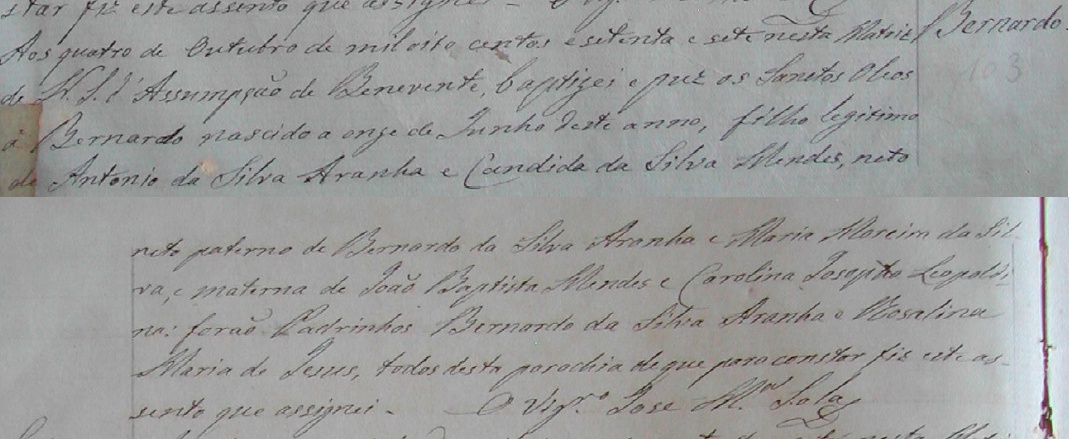 star fiz este assento que assignei -
Aos quatro de Outubro de mil oito centos e setenta e sete nesta Matriz Bernardo.
de N. S. d' Assumpção de Benevente, baptizei e puz os Sanctos Oleos 103
á Bernardo nascido a onze de Junho deste anno, filho legitimo
de Antonio da Silva Aranha e Candida da Silva Mendes, neto
neto paterno de Bernardo da Silva Aranha e Maria Moreira da Sil-
va, e materna de João Baptista Mendes e Carolina Josepha Leopoldi-
na: forão Padrinhos Bernardo da Silva Aranha e Rosalina
Maria de Jesus, todos desta parochia de que para constar fiz este as-
sento que assignei - O Vigr.º Jose M.